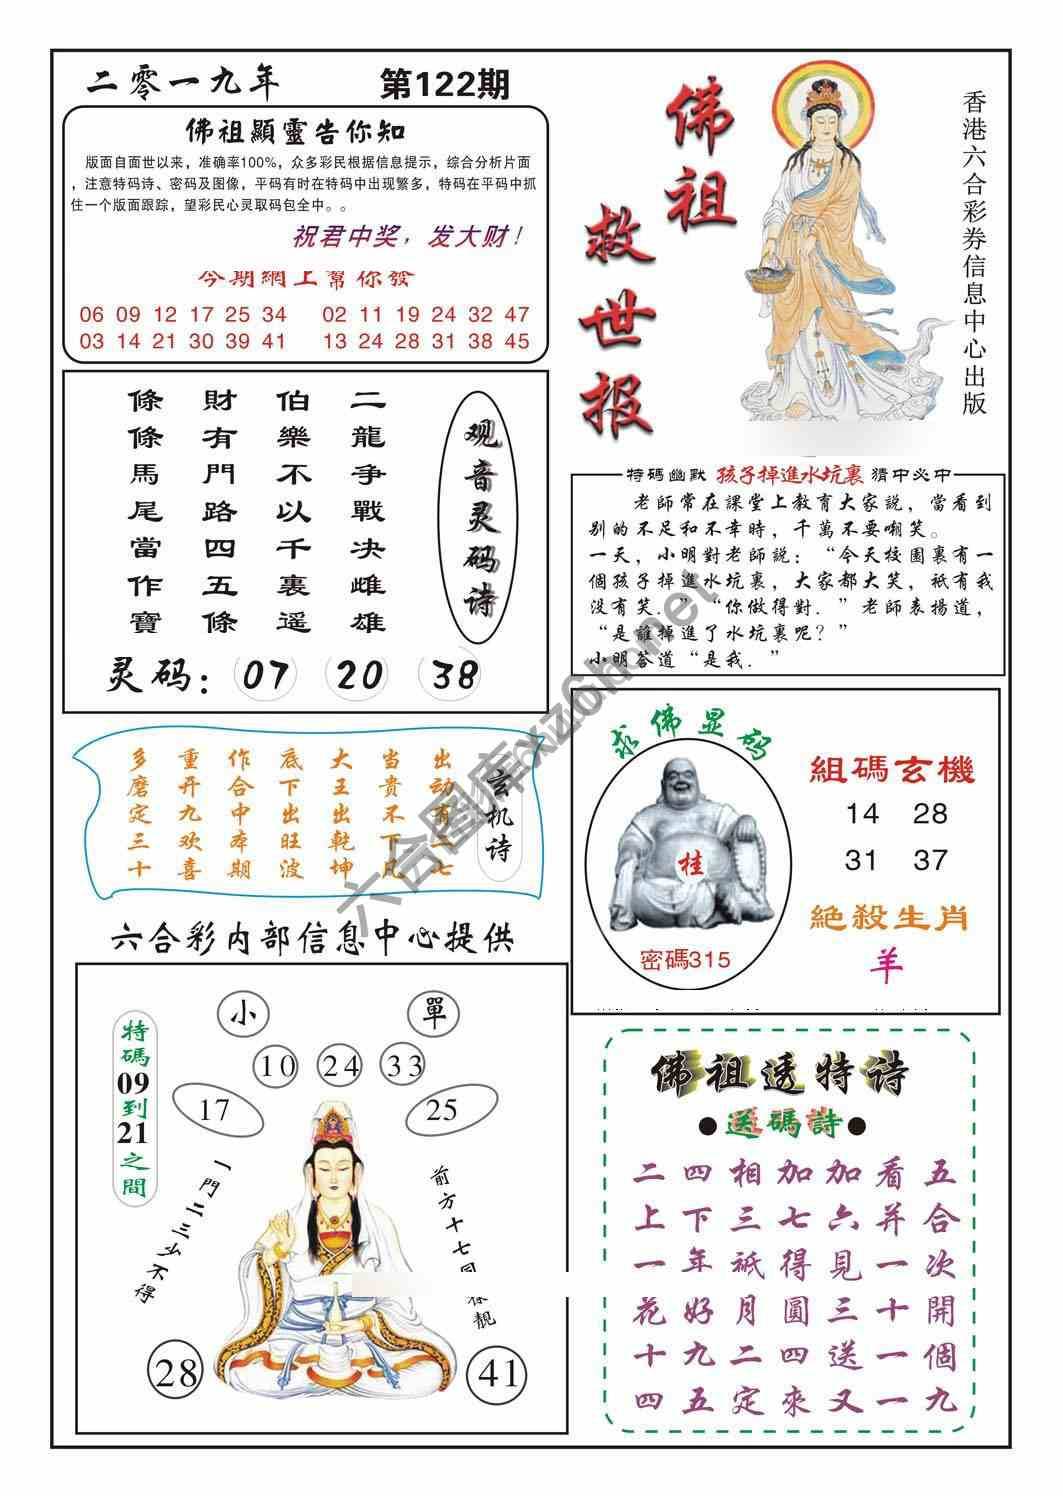 二零一九年
第122期
佛祖顯靈告你知
版面自面世以来，准确率100%，众多彩民根据信息提示，综合分析片面
，注意特码诗、密码及图像，平码有时在特码中出现繁多，特码在平码中抓
住一个版面跟踪，望彩民心灵取码包全中。。
祝君中奖，发大财！
今期網上幫你發
06 09 12 17 25 34 02 11 19 24 32 47
03 14 21 30 39 41 13 24 28 31 38 45
佛祖救世报
香港六合彩券信息中心出版
观音灵码诗
二龍争戰决雌雄
伯樂不以千裏遥
財有門路四五條
條條馬尾當作寶
灵码：07 20 38
特碼幽默 孩子掉進水坑裏 猜中必中
老師常在課堂上教育大家説，當看到
别的不足和不幸時，千萬不要嘲笑。
一天，小明對老師説：“今天校園裏有一
個孩子掉進水坑裏，大家都大笑，衹有我
没有笑．”“你做得對．”老師表揚道，
“是誰掉進了水坑裏呢？”
小明答道“是我．”
玄机诗
出动有二七
当贵不下凡
大王出乾坤
底下出旺波
作合中本期
重开九欢喜
多磨定三十
六合彩内部信息中心提供
求佛显码
桂
密碼315
組碼玄機
14 28
31 37
絶殺生肖
羊
小 單
10 24 33
17 25
特碼09到21之間
一門二三少不得
前方十七
靚
28 41
佛祖透特诗
●送碼詩●
二四相加加看五
上下三七六并合
一年衹得見一次
花好月圓三十開
十九二四送一個
四五定來又一九
六合图库xz6h.net